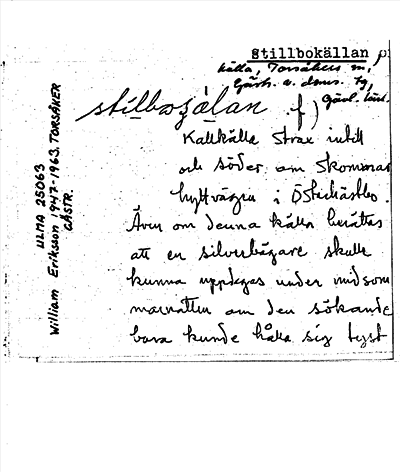 Stillbokällan
källa, Torsåkers sn,
Gästr. ö. doms. tg,
Gävl. län.
stillbozålan f)
Kallkälla strax intill
och söder om Skommar
hyttvägen i Österhästbo.
Även om denna källa berättas
att en silverbägare skulle
kunna uppdagas under midsom
marnatten om den sökande
bara kunde hålla sig tyst
ULMA 25063
William Eriksson 1947-1963. TORSÅKER
GÄSTR.